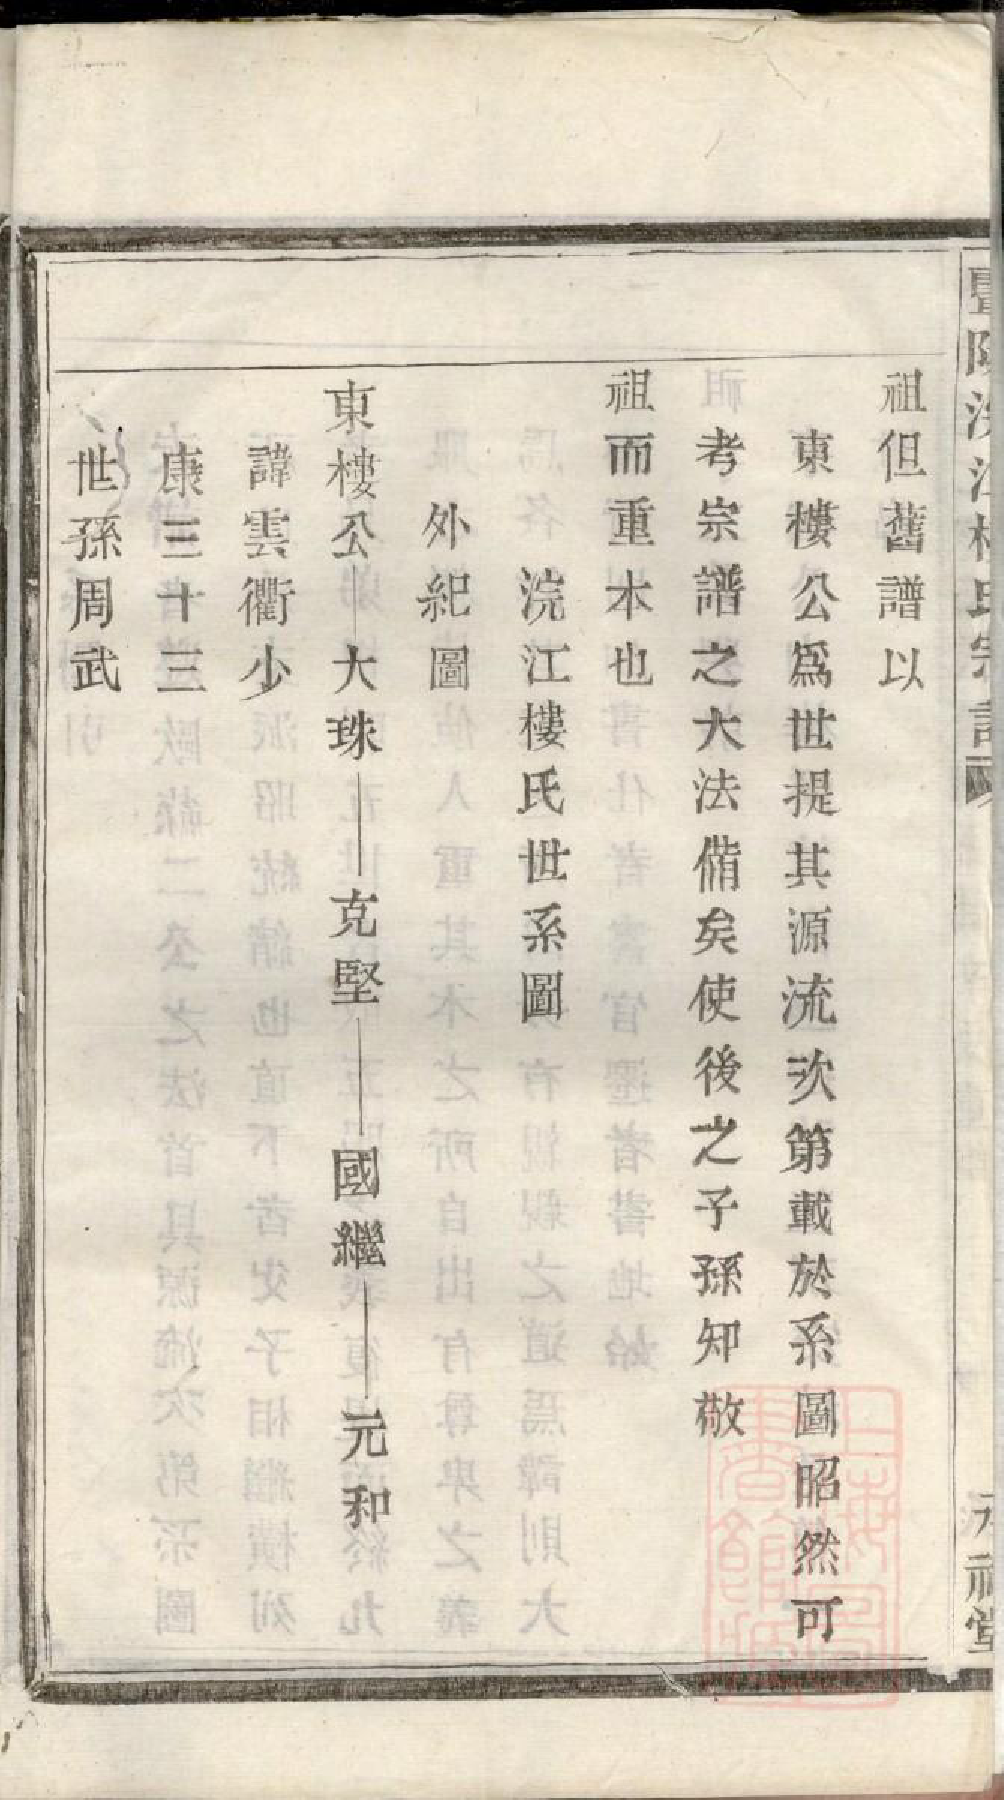 祖但舊譜以
東樓公為世提其源流次第載於系圖昭然可
考宗譜之大法備矣使後之子孫知敬
祖而重本也
浣江樓氏世系圖
外紀圖
東樓公 大珠 克堅 國繼 元和
諱雲衢少
康三十三
世孫周武
上海圖書館藏